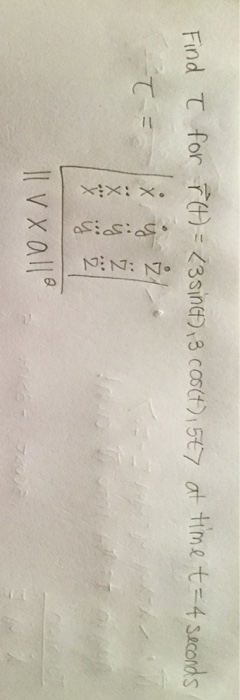 Find τ for r⃗(t) = <3sin(t), 3 cos(t), 5t> at time t = 4 seconds
τ =
ẋ ẏ ż
ẍ ÿ z̈
x⃛ y⃛ z⃛
|| v x a ||²